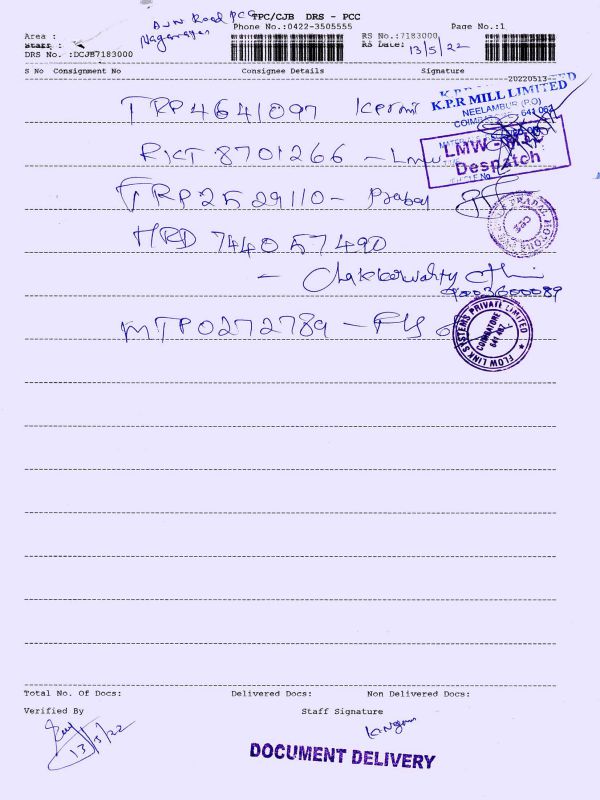 AVN Road PCC
TPC/CJB DRS - PCC
Phone No.:0422-3505555
Page No.:1
Area :
Staff :
DRS No. :DCJB7183000
RS No.:7183000
RS Date: 13/5/22
S No Consignment No Consignee Details Signature
20220513
TRP4641097 kprmi
K.P.R MILL LIMITED
NEELAMBUR (P.O)
COIMBATORE - 641 062
RKT 8701266 - Lmw
LMW -
Despatch
TRP2529110 - Prabal
HRD 744057490
- Chakkarwahty
9003600089
MTP0272789 - FLS
FLOW LINK SYSTEMS PRIVATE LIMITED
COIMBATORE
641 407
Total No. Of Docs: Delivered Docs: Non Delivered Docs:
Verified By Staff Signature
13/5/22
DOCUMENT DELIVERY